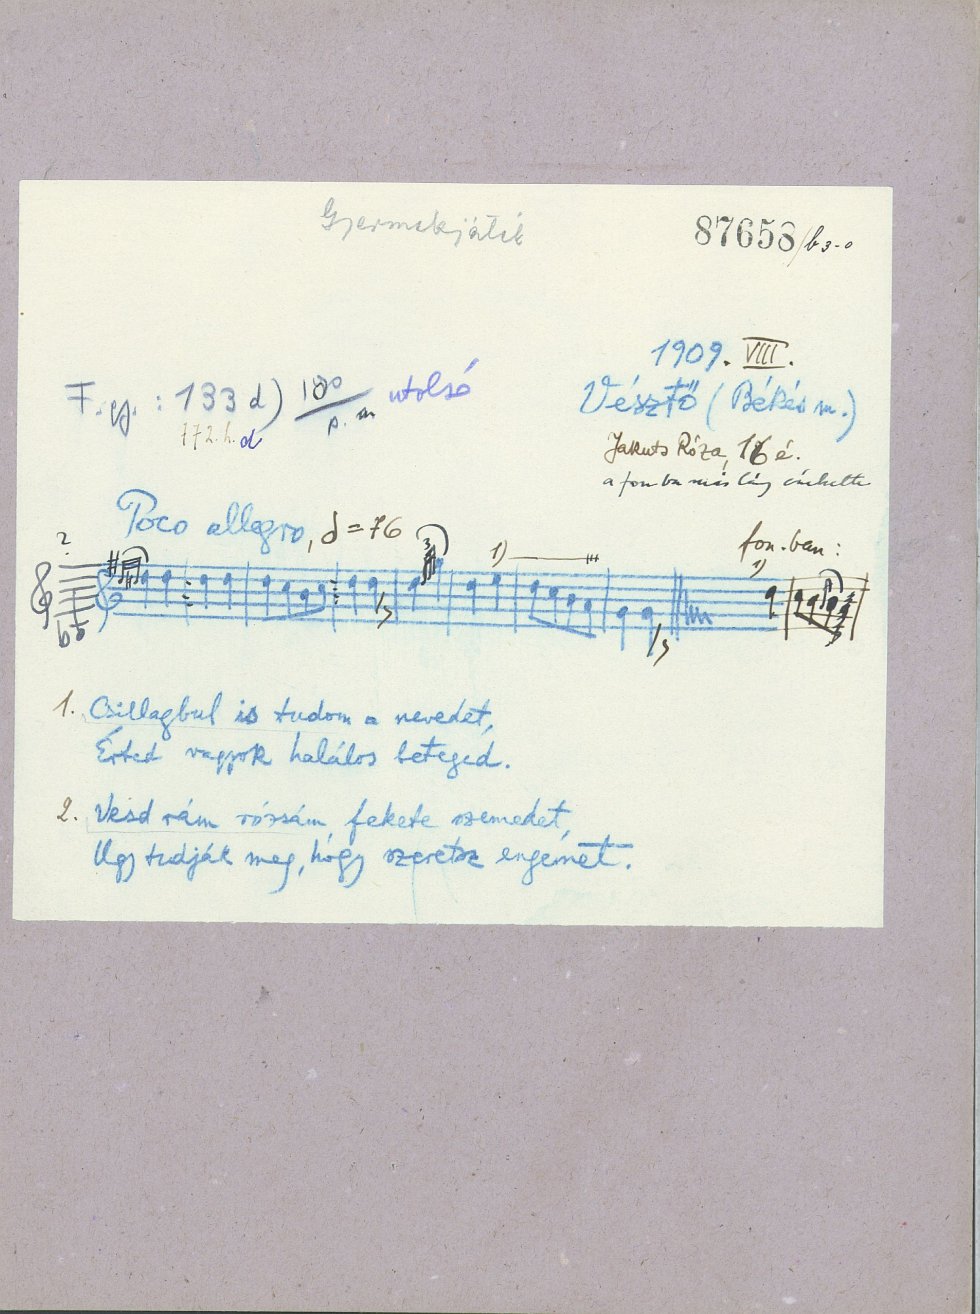 Gyermekjáték
87658/b3-0
1909. VIII.
F. gy. : 133 d) 180 utolsó
p. m
Vésztő (Békés m.)
772. h. d
Jakuts Róza, 16 é.
a fon-ba más lány énekelte
Poco allegro, ♩=76
fon.-ban:
?
3
1)
1)
1. Csillagbul is tudom a nevedet,
Érted vagyok halálos beteged.
2. Vesd rám rózsám, fekete szemedet,
Ugy tudják meg, hogy szeretsz engemet.